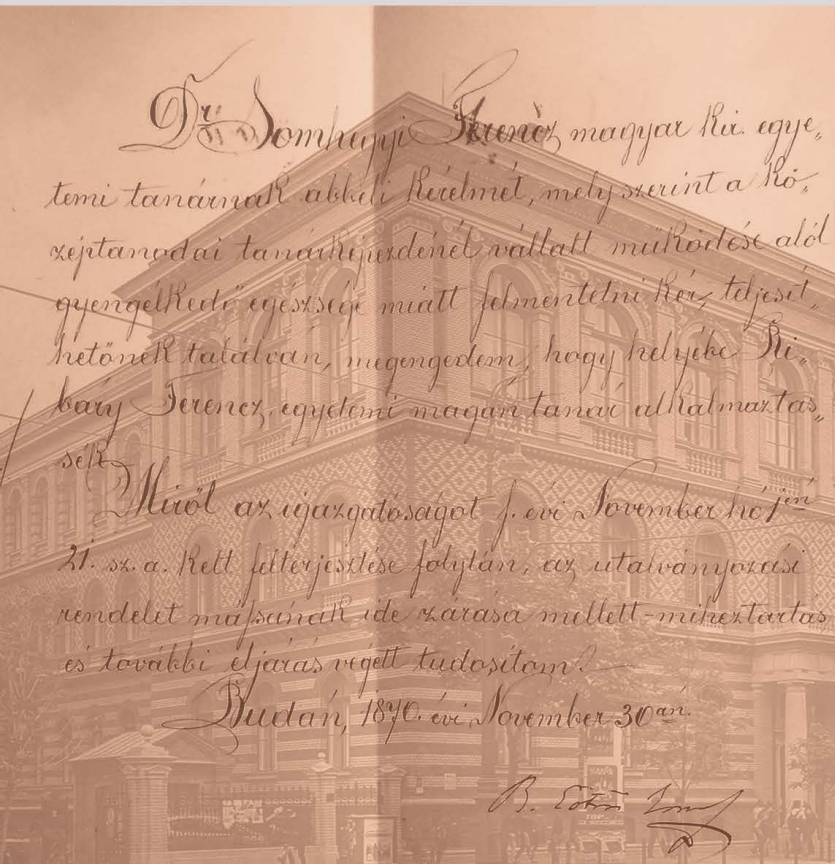 Dr. Somhegyi Ferencz magyar kir. egye„
temi tanárnak abbeli kérelmét, mely szerint a kö„
zéptanodai tanárképezdénél vállalt működése alól
gyengélkedő egészsége miatt felmentetni kér, teljesít„
hetőnek találván, megengedem, hogy helyébe Ri„
báry Ferencz egyetemi magán tanár alkalmaztas„
sék.
Miről az igazgatóságot f. évi November hó
21. sz. a. kelt felterjesztése folytán, az utalványozási
rendelet másának ide zárása mellett - miheztartás
és további eljárás végett tudositom.
Budán, 1870. évi November 30 án.
B. Eötvös